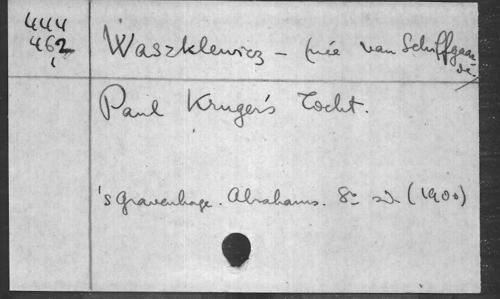 444
462
1
Waszklewicz - (née van Schilfgaarde)
Paul Kruger's Tocht.
's Gravenhage. Abrahams. 8º s.d. (1900)